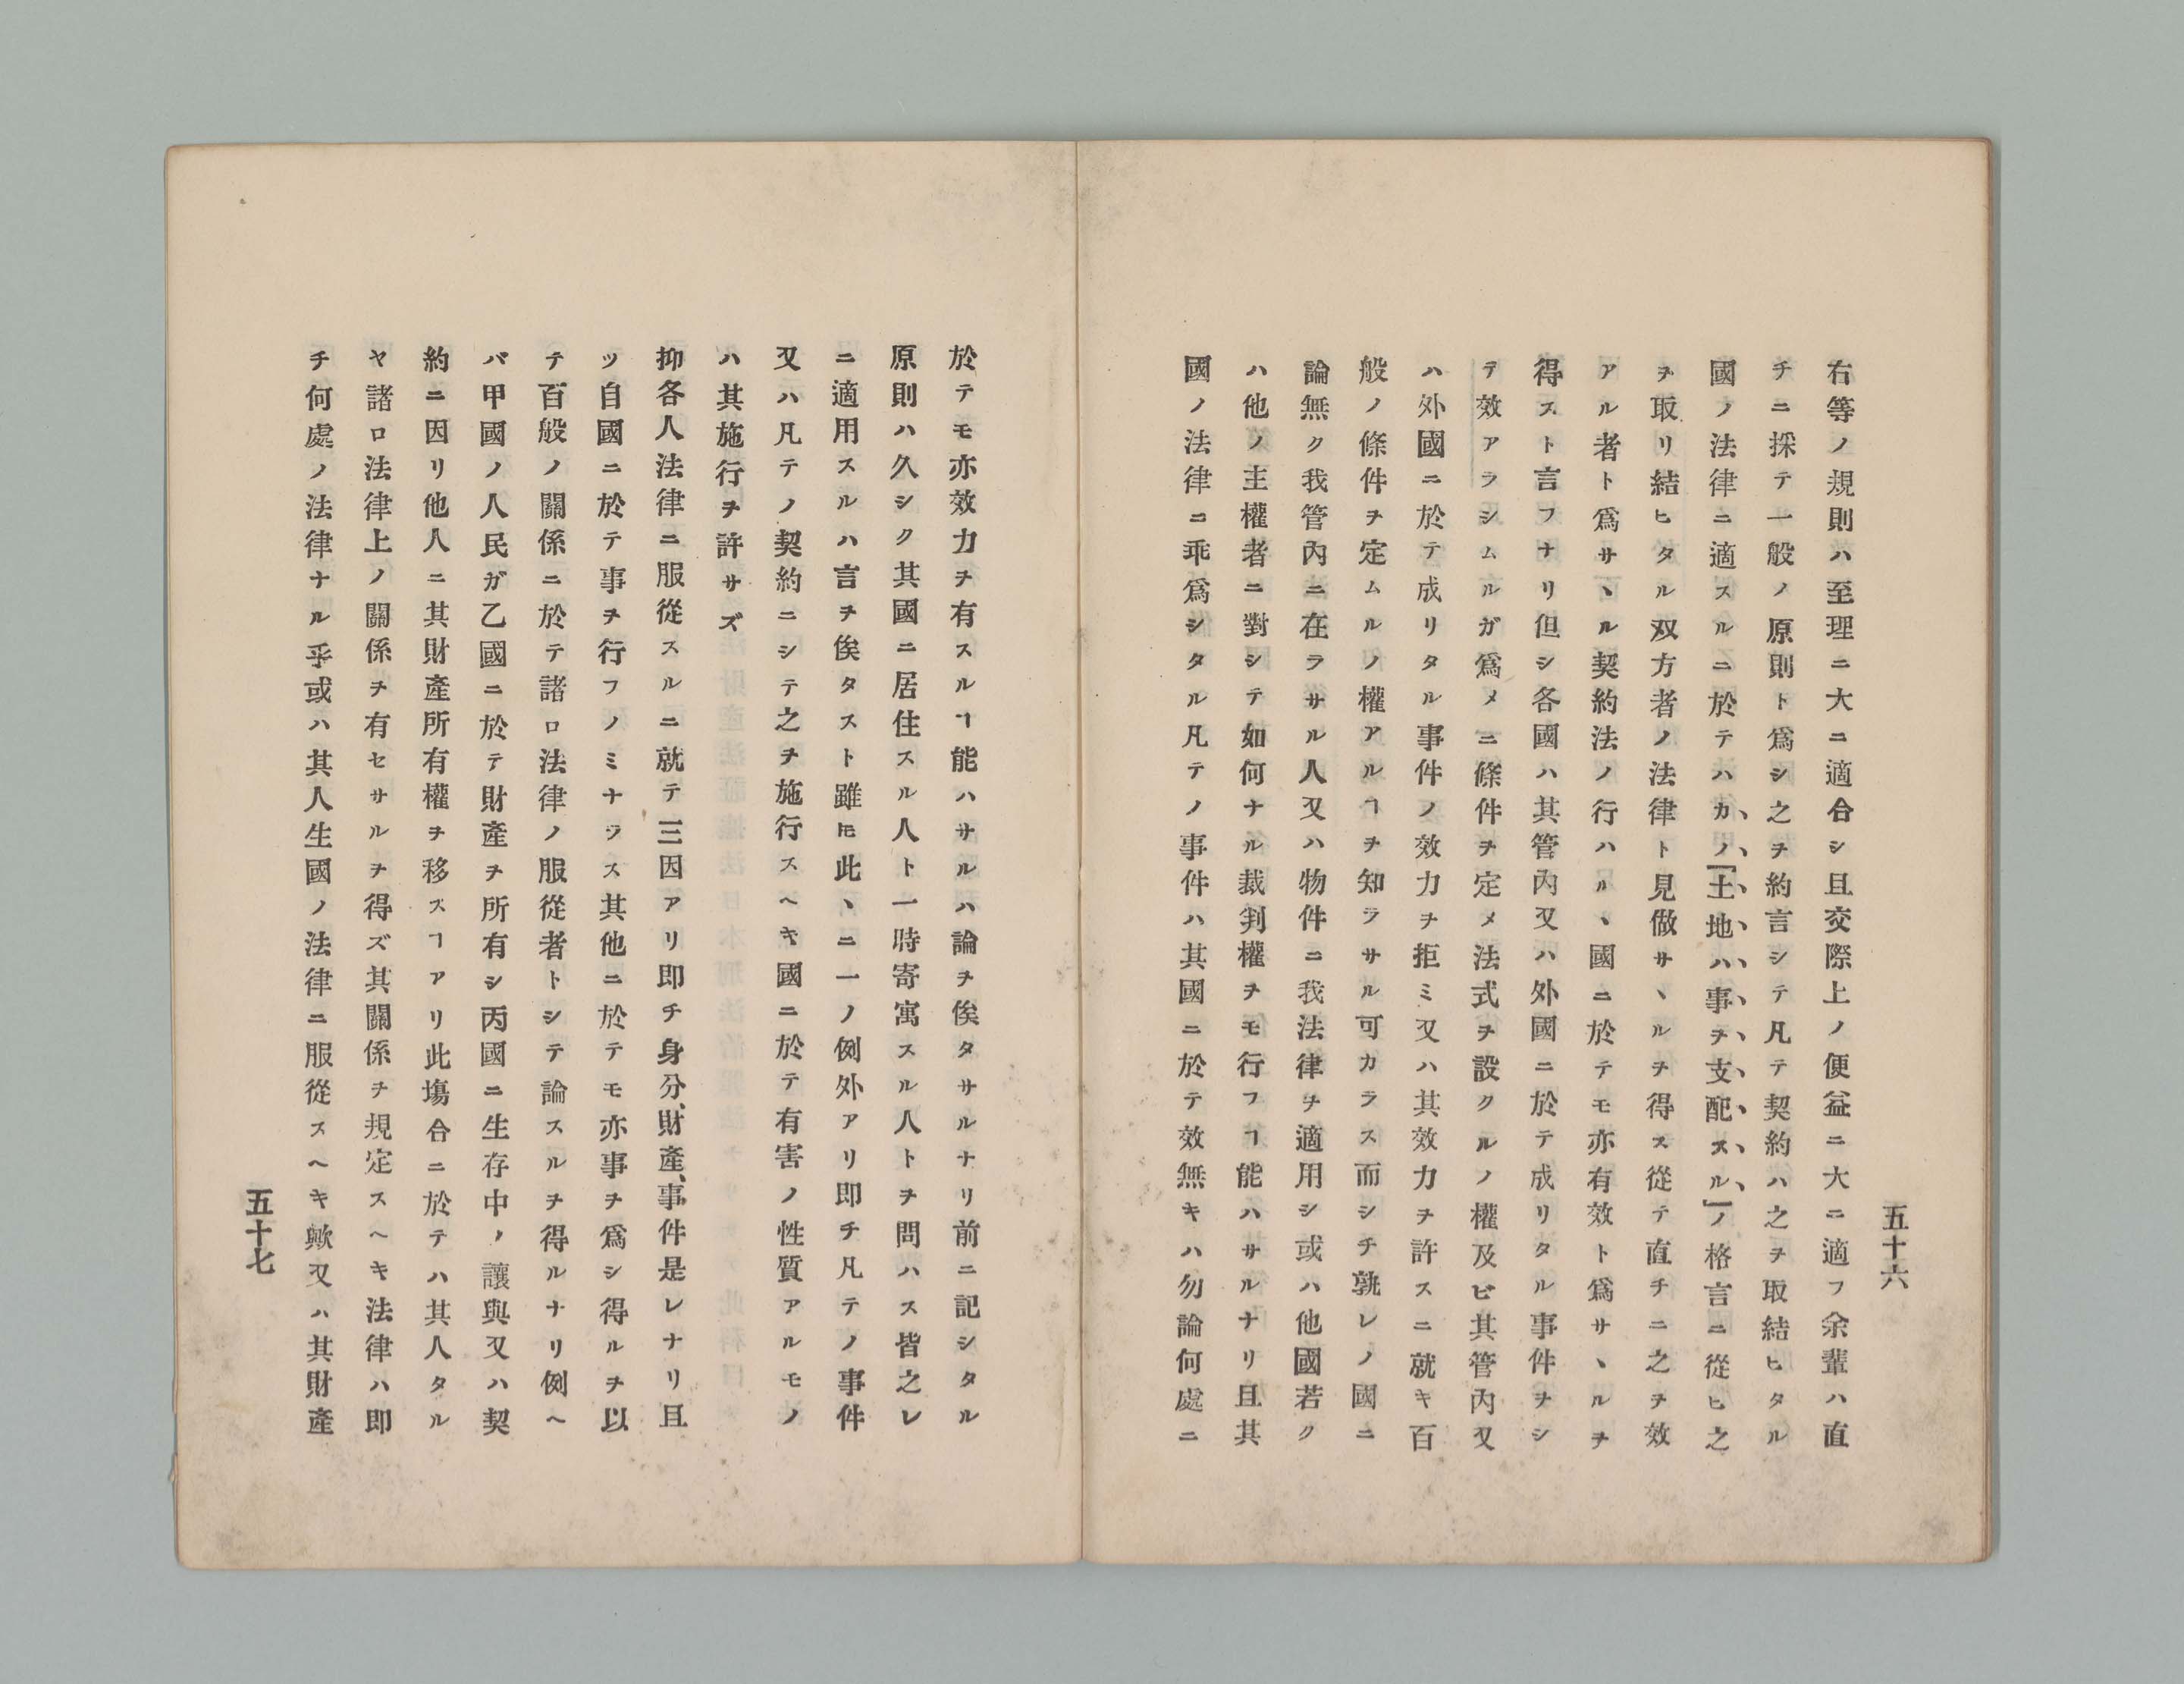 五十六
右等ノ規則ハ至理ニ大ニ適合シ且交際上ノ便益ニ大ニ適フ余輩ハ直
チニ採テ一般ノ原則ト爲シ之ヲ約言シテ凡テ契約ハ之ヲ取結ヒタル
國ノ法律ニ適スルニ於テハカノ「土地ハ事ヲ支配スル」ノ格言ニ從ヒ之
ヲ取リ結ヒタル双方者ノ法律ト見做サヽルヲ得ス從テ直チニ之ヲ效
アル者ト爲サヽル契約法ノ行ハルヽ國ニ於テモ亦有效ト爲サヽルヲ
得スト言フナリ但シ各國ハ其管內又ハ外國ニ於テ成リタル事件ヲシ
テ效アラシムルガ爲メニ條件ヲ定メ法式ヲ設クルノ權及ビ其管內又
ハ外國ニ於テ成リタル事件ノ效力ヲ拒ミ又ハ其效力ヲ許スニ就キ百
般ノ條件ヲ定ムルノ權アルヿヲ知ラサル可カラス而シテ孰レノ國ニ
論無ク我管內ニ在ラサル人又ハ物件ニ我法律ヲ適用シ或ハ他國若ク
ハ他ノ主權者ニ對シテ如何ナル裁判權ヲモ行フヿ能ハサルナリ且其
國ノ法律ニ乖爲シタル凡テノ事件ハ其國ニ於テ效無キハ勿論何處ニ
於テモ亦效力ヲ有スルヿ能ハサルハ論ヲ俟タサルナリ前ニ記シタル
原則ハ久シク其國ニ居住スル人ト一時寄寓スル人トヲ問ハス皆之レ
ニ適用スルハ言ヲ俟タスト雖𪜈此ヽニ一ノ例外アリ即チ凡テノ事件
又ハ凡テノ契約ニシテ之ヲ施行スヘキ國ニ於テ有害ノ性質アルモノ
ハ其施行ヲ許サズ
抑各人法律ニ服從スルニ就テ三因アリ即チ身分、財產、事件是レナリ且
ツ自國ニ於テ事ヲ行フノミナラス其他ニ於テモ亦事ヲ爲シ得ルヲ以
テ百般ノ關係ニ於テ諸ロ法律ノ服從者トシテ論スルヲ得ルナリ例ヘ
バ甲國ノ人民ガ乙國ニ於テ財產ヲ所有シ丙國ニ生存中ノ讓與又ハ契
約ニ因リ他人ニ其財產所有權ヲ移スヿアリ此塲合ニ於テハ其人タル
ヤ諸ロ法律上ノ關係ヲ有セサルヲ得ズ其關係ヲ規定スヘキ法律ハ即
チ何處ノ法律ナル乎或ハ其人生國ノ法律ニ服從スヘキ歟又ハ其財產
五十七